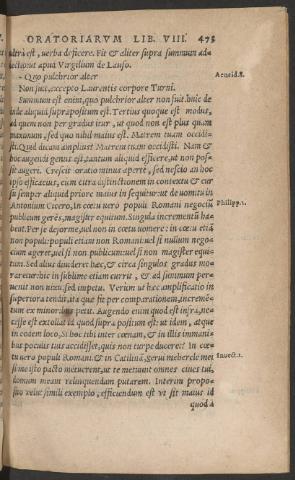 ORATORIARVM LIB. VIII. 475
est, verba deficere. Fit & aliter supra summum ad-
iectio: vt apud Virgilium de Lauso.
- Quo pulchrior alter Aeneid. 8.
Non fuit, excepto Laurentis corpore Turni.
Summum est enim, quo pulchrior alter non fuit. huic de
inde aliquid superpositum est. Tertius quoque est modus,
ad quem non per gradus itur, vt quod non est plus quam
maximum, sed quo nihil maius est. Matrem tuam occidi-
sti. Quid dicam amplius? Matrem tuam occidisti. Nam &
hoc augendi genus est, tantum aliquid efficere, vt non pos-
sit augeri. Crescit oratio minus aperte, sed nescio an hoc
ipso efficacius, cum citra distinctionem in contextu & cur
su semper aliquid priore maius insequitur: vt de vomitu in
Antonium Cicero, In cœtu vero populi Romani negociũ Philipp. 2.
publicum gerẽs, magister equitum. Singula incrementũ ha-
bent. Per se deforme, vel non in cœtu vomere: in cœtu etiã
non populi: populi etiam non Romani: vel si nullum nego-
cium ageret, vel si non publicum: vel si non magister equi-
tum. Sed alius diuideret hæc, & circa singulos gradus mo-
raretur: hic in sublime etiam currit, & ad summum per-
uenit non nixu, sed impetu. Verum vt hæc amplificatio in
superiora tendit, ita quæ fit per comparationem, incremẽ-
tum ex minoribus petit. Augendo enim quod est infra, ne-
cesse est extollat id quod supra positum est: vt idem, atque
in eodem loco, Si hoc tibi inter cœnam, & in illis immani-
bus poculis tuis accidisset, quis non turpe duceret? In cœ-
tu vero populi Romani. & in Catilinã, Serui mehercle mei Inuect. 1.
si me isto pacto metuerent, vt te metuunt omnes ciues tui,
domum meam relinquendam putarem. Interim propo-
sito velut simili exemplo, efficiendum est vt sit maius id
quod à